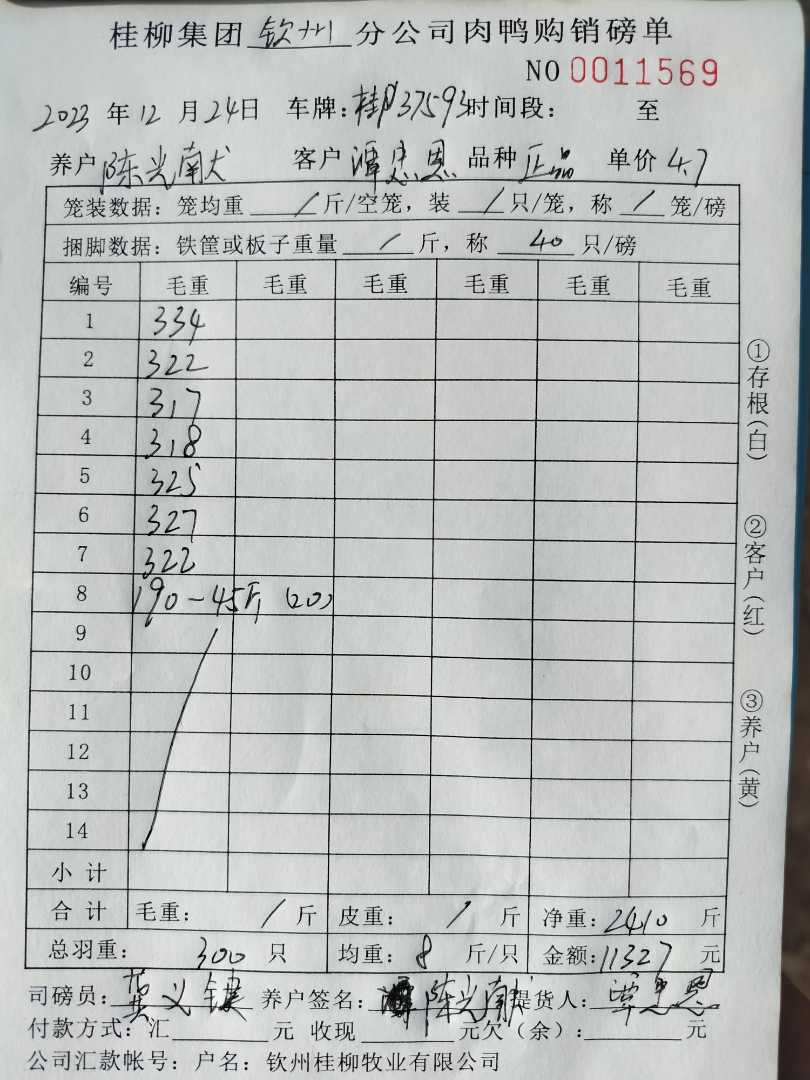 桂柳集团 钦州 分公司肉鸭购销磅单
NO 0011569
2023 年 12 月 24日 车牌：桂P37593 时间段： 至
养户 陈光南犬 客户 谭忠恩 品种 正品 单价 4.7
笼装数据：笼均重 / 斤/空笼，装 / 只/笼，称 / 笼/磅
捆脚数据：铁筐或板子重量 / 斤，称 40 只/磅
编号 毛重 毛重 毛重 毛重 毛重 毛重
1 334
2 322
3 317
4 318
5 325
6 327
7 322
8 190-45斤 (20)
9
10
11
12
13
14
小计
合计 毛重： / 斤 皮重： / 斤 净重：2410 斤
总羽重： 300 只 均重：8 斤/只 金额：11327 元
司磅员： 黄义键 养户签名： 陈光南犬 提货人： 谭忠恩
付款方式：汇 元 收现 元欠（余）： 元
公司汇款帐号：户名：钦州桂柳牧业有限公司
①存根(白)
②客户(红)
③养户(黄)